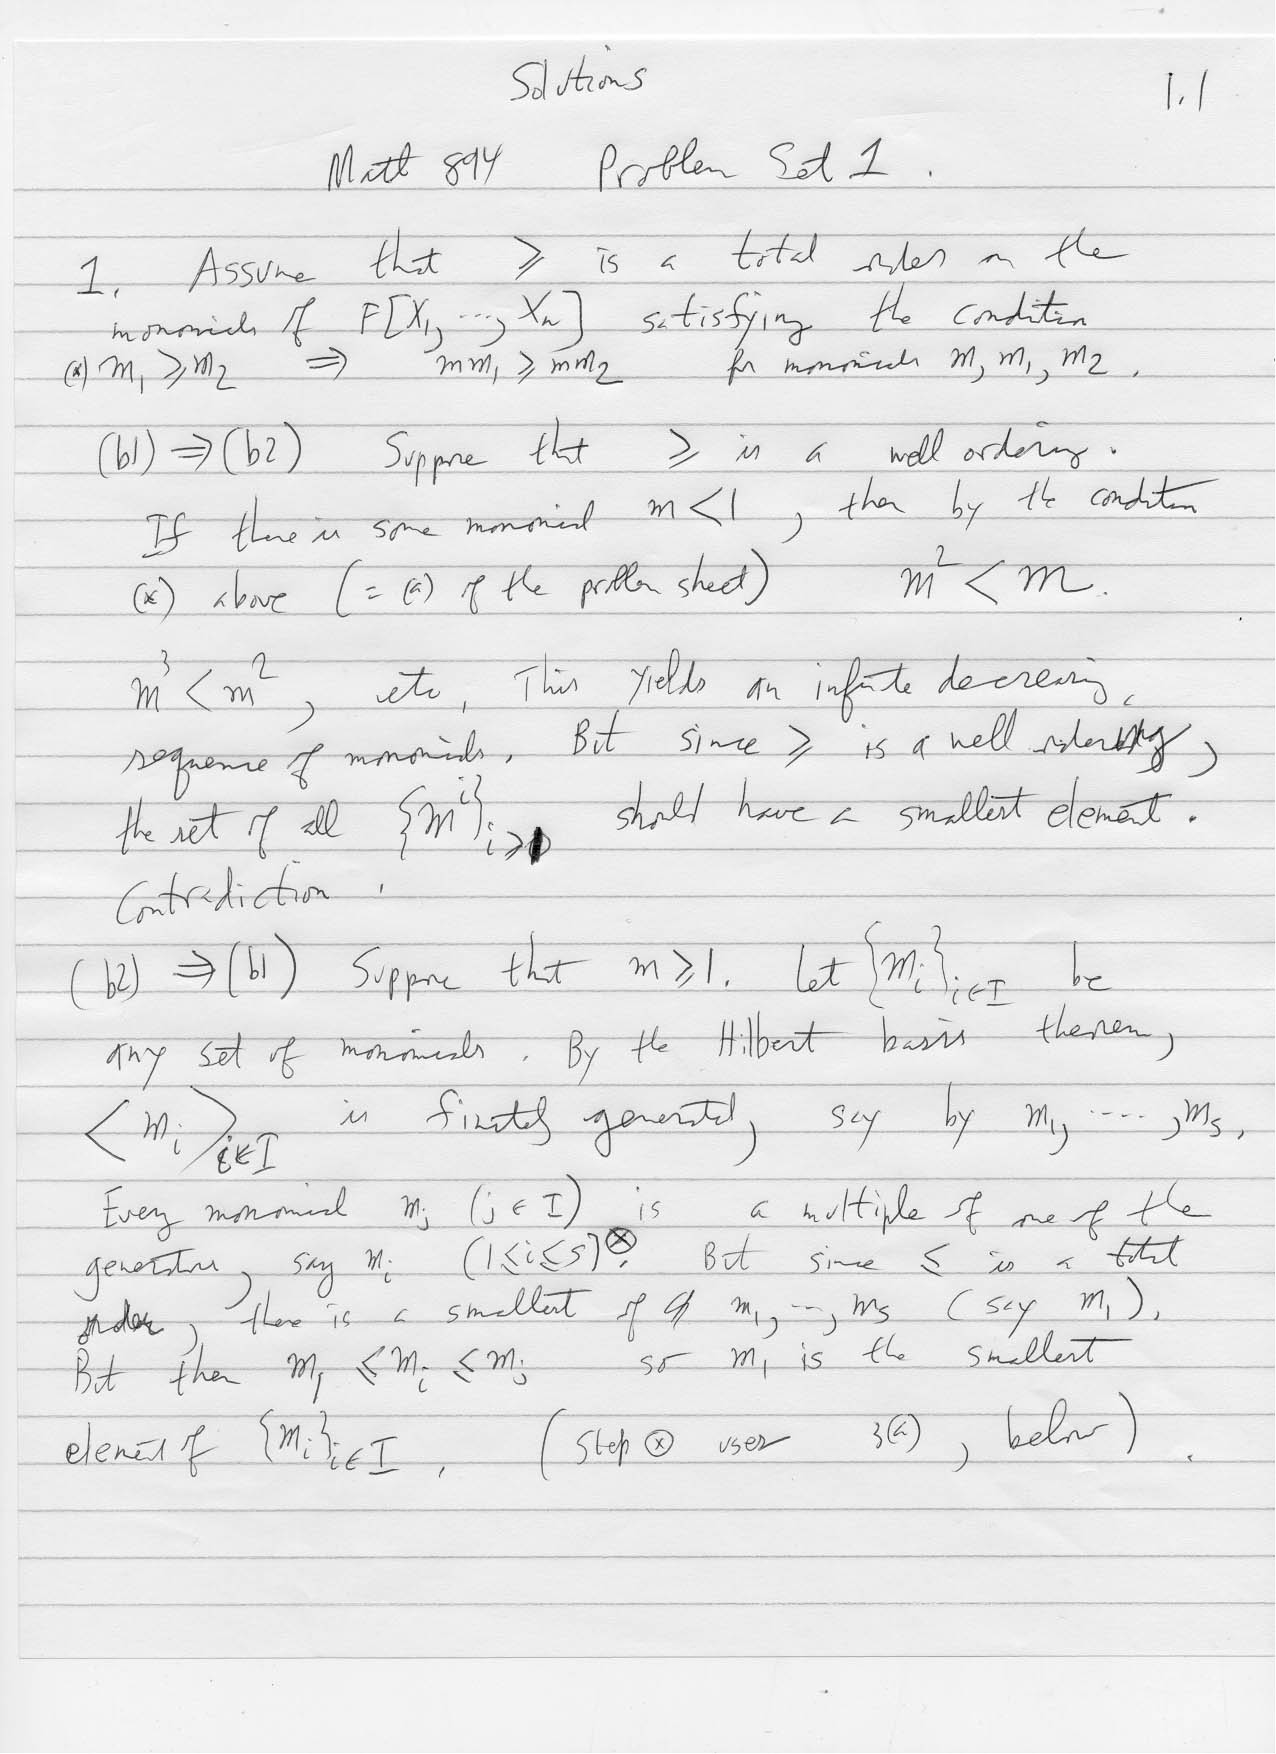 Solutions
1.1
Math 894 Problem Set 1.
1. Assume that ⩾ is a total order on the
monomials of F[X₁, ..., Xₙ] satisfying the condition
(*) m₁ ⩾ m₂ ⇒ mm₁ ⩾ mm₂ for monomials m, m₁, m₂.
(b1) ⇒ (b2) Suppose that ⩾ is a well ordering.
If there is some monomial m < 1, then by the condition
(*) above (= (a) of the problem sheet) m² < m.
m³ < m², etc. This yields an infinite decreasing
sequence of monomials. But since ⩾ is a well ordering,
the set of all {mⁱ}ᵢ⩾ should have a smallest element.
Contradiction.
(b2) ⇒ (b1) Suppose that m ⩾ 1. Let {mᵢ}ᵢ∈I be
any set of monomials. By the Hilbert basis theorem,
<mᵢ>ᵢ∈I is finitely generated, say by m₁, ...., mₛ.
Every monomial mⱼ (j ∈ I) is a multiple of one of the
generators, say mᵢ (1 ≤ i ≤ s)⊗. But since ≤ is a total
order, there is a smallest of m₁, ..., mₛ (say m₁).
But then m₁ ≤ mᵢ ≤ mⱼ so m₁ is the smallest
element of {mᵢ}ᵢ∈I. (Step ⊗ uses 3(a), below).